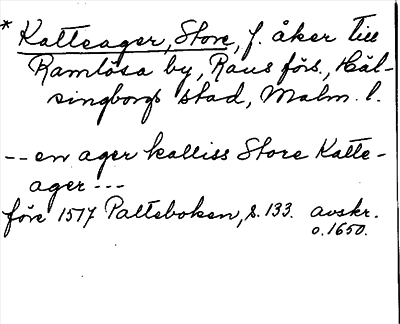 * Katteager, Store, f. åker till
Ramlösa by, Raus förs., Häl-
singborgs stad, Malm. l.
-- en ager kalliss Store Katte-
ager ---
före 1517 Palteboken, s. 133. avskr.
o. 1650.